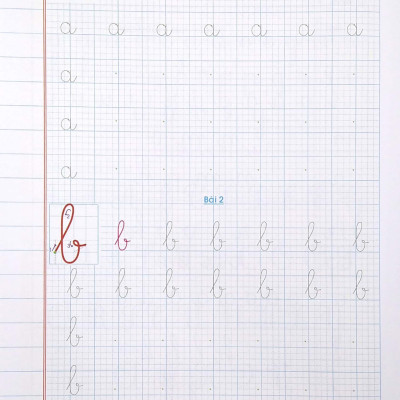 a a a a a a a
a
a
a
Bài 2
b b b b b b b
b b b b b b b
b
b